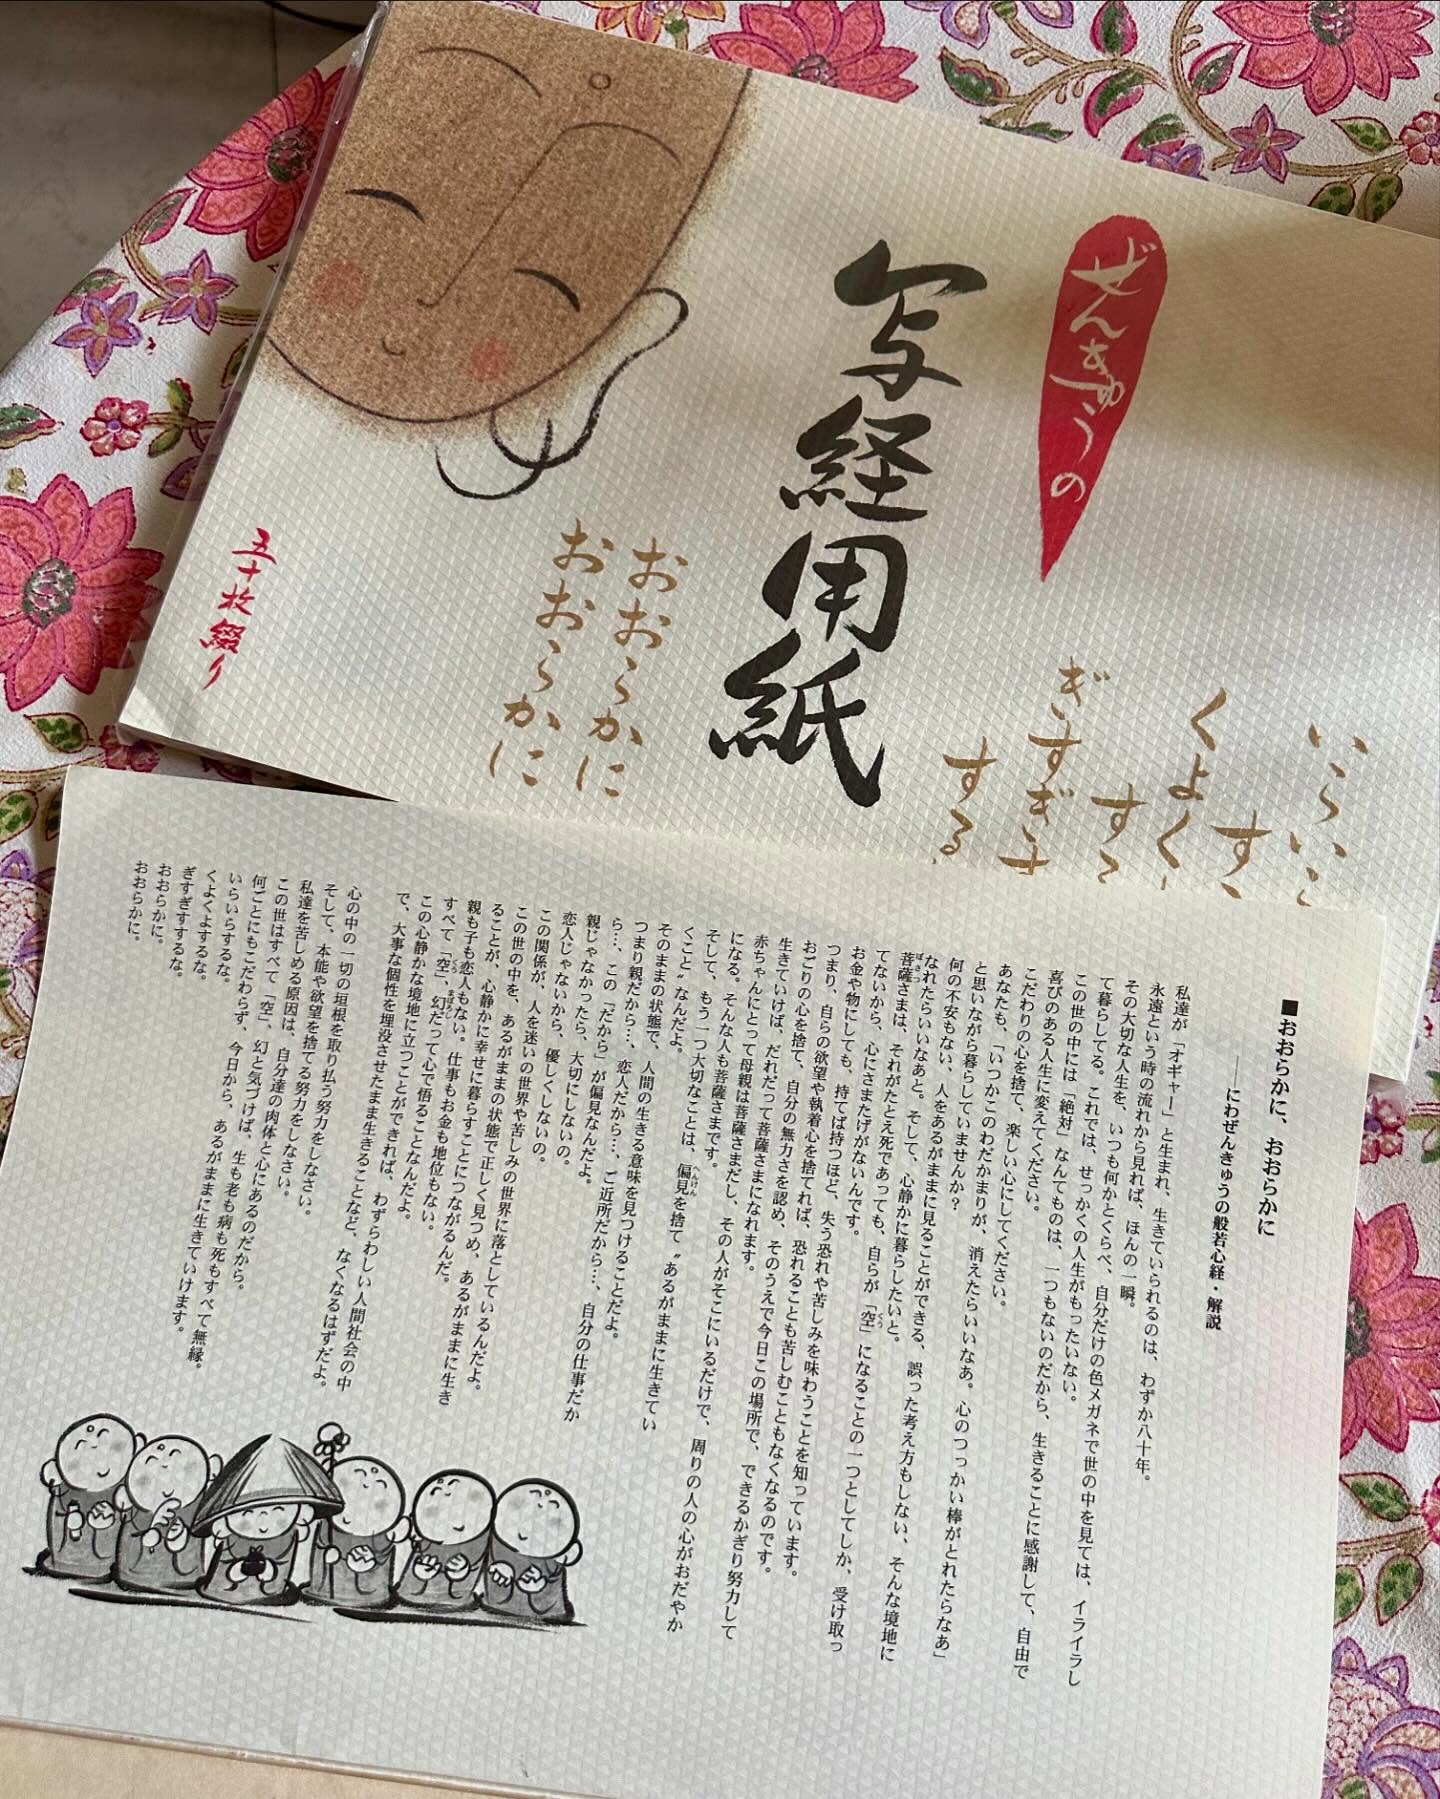 ぜんきゅうの
写経用紙
いらいら
くよくよ
ぎすぎす
する
おおらかに
おおらかに
五十枚綴り
■おおらかに、おおらかに
――にわぜんきゅうの般若心経・解説
私達が「オギャー」と生まれ、生きていられるのは、わずか八十年。
永遠という時の流れから見れば、ほんの一瞬。
その大切な人生を、いつも何かとくらべ、自分だけの色メガネで世の中を見ては、イライラし
て暮らしてる。これでは、せっかくの人生がもったいない。
この世の中には「絶対」なんてものは、一つもないのだから、生きることに感謝して、自由で
喜びのある人生に変えてください。
こだわりの心を捨て、楽しい心にしてください。
あなたも、「いつかこのわだかまりが、消えたらいいなあ。心のつっかい棒がとれたらなあ」
と思いながら暮らしていませんか？
何の不安もない、人をあるがままに見ることができる、誤った考え方もしない、そんな境地に
なれたらいいなあと。そして、心静かに暮らしたいと。
菩薩さまは、それがたとえ死であっても、自らが「空」になることの一つとしてしか、受け取っ
てないから、心にさまたげがないんです。
お金や物にしても、持てば持つほど、失う恐れや苦しみを味わうことを知っています。
つまり、自らの欲望や執着心を捨てれば、恐れることも苦しむこともなくなるのです。
おごりの心を捨て、自分の無力さを認め、そのうえで今日この場所で、できるかぎり努力して
生きていけば、だれだって菩薩さまになれます。
赤ちゃんにとって母親は菩薩さまだし、その人がそこにいるだけで、周りの人の心がおだやか
になる。そんな人も菩薩さまです。
そして、もう一つ大切なことは、偏見を捨て〝あるがままに生きてい
くこと〟なんだよ。
そのままの状態で、人間の生きる意味を見つけることだよ。
つまり親だから…、恋人だから…、ご近所だから…、自分の仕事だか
ら…、この「だから」が偏見なんだよ。
親じゃなかったら、大切にしないの。
恋人じゃないから、優しくしないの。
この関係が、人を迷いの世界や苦しみの世界に落としているんだよ。
この世の中を、あるがままの状態で正しく見つめ、あるがままに生き
ることが、心静かに幸せに暮らすことにつながるんだ。
親も子も恋人もない。仕事もお金も地位もない。
すべて「空」、幻だって心で悟ることなんだよ。
この心静かな境地に立つことができれば、わずらわしい人間社会の中
で、大事な個性を埋没させたまま生きることなど、なくなるはずだよ。
心の中の一切の垣根を取り払う努力をしなさい。
そして、本能や欲望を捨てる努力をしなさい。
私達を苦しめる原因は、自分達の肉体と心にあるのだから。
この世はすべて「空」、幻と気づけば、生も老も病も死もすべて無縁。
何ごとにもこだわらず、今日から、あるがままに生きていけます。
いらいらするな。
くよくよするな。
ぎすぎすするな。
おおらかに。
おおらかに。